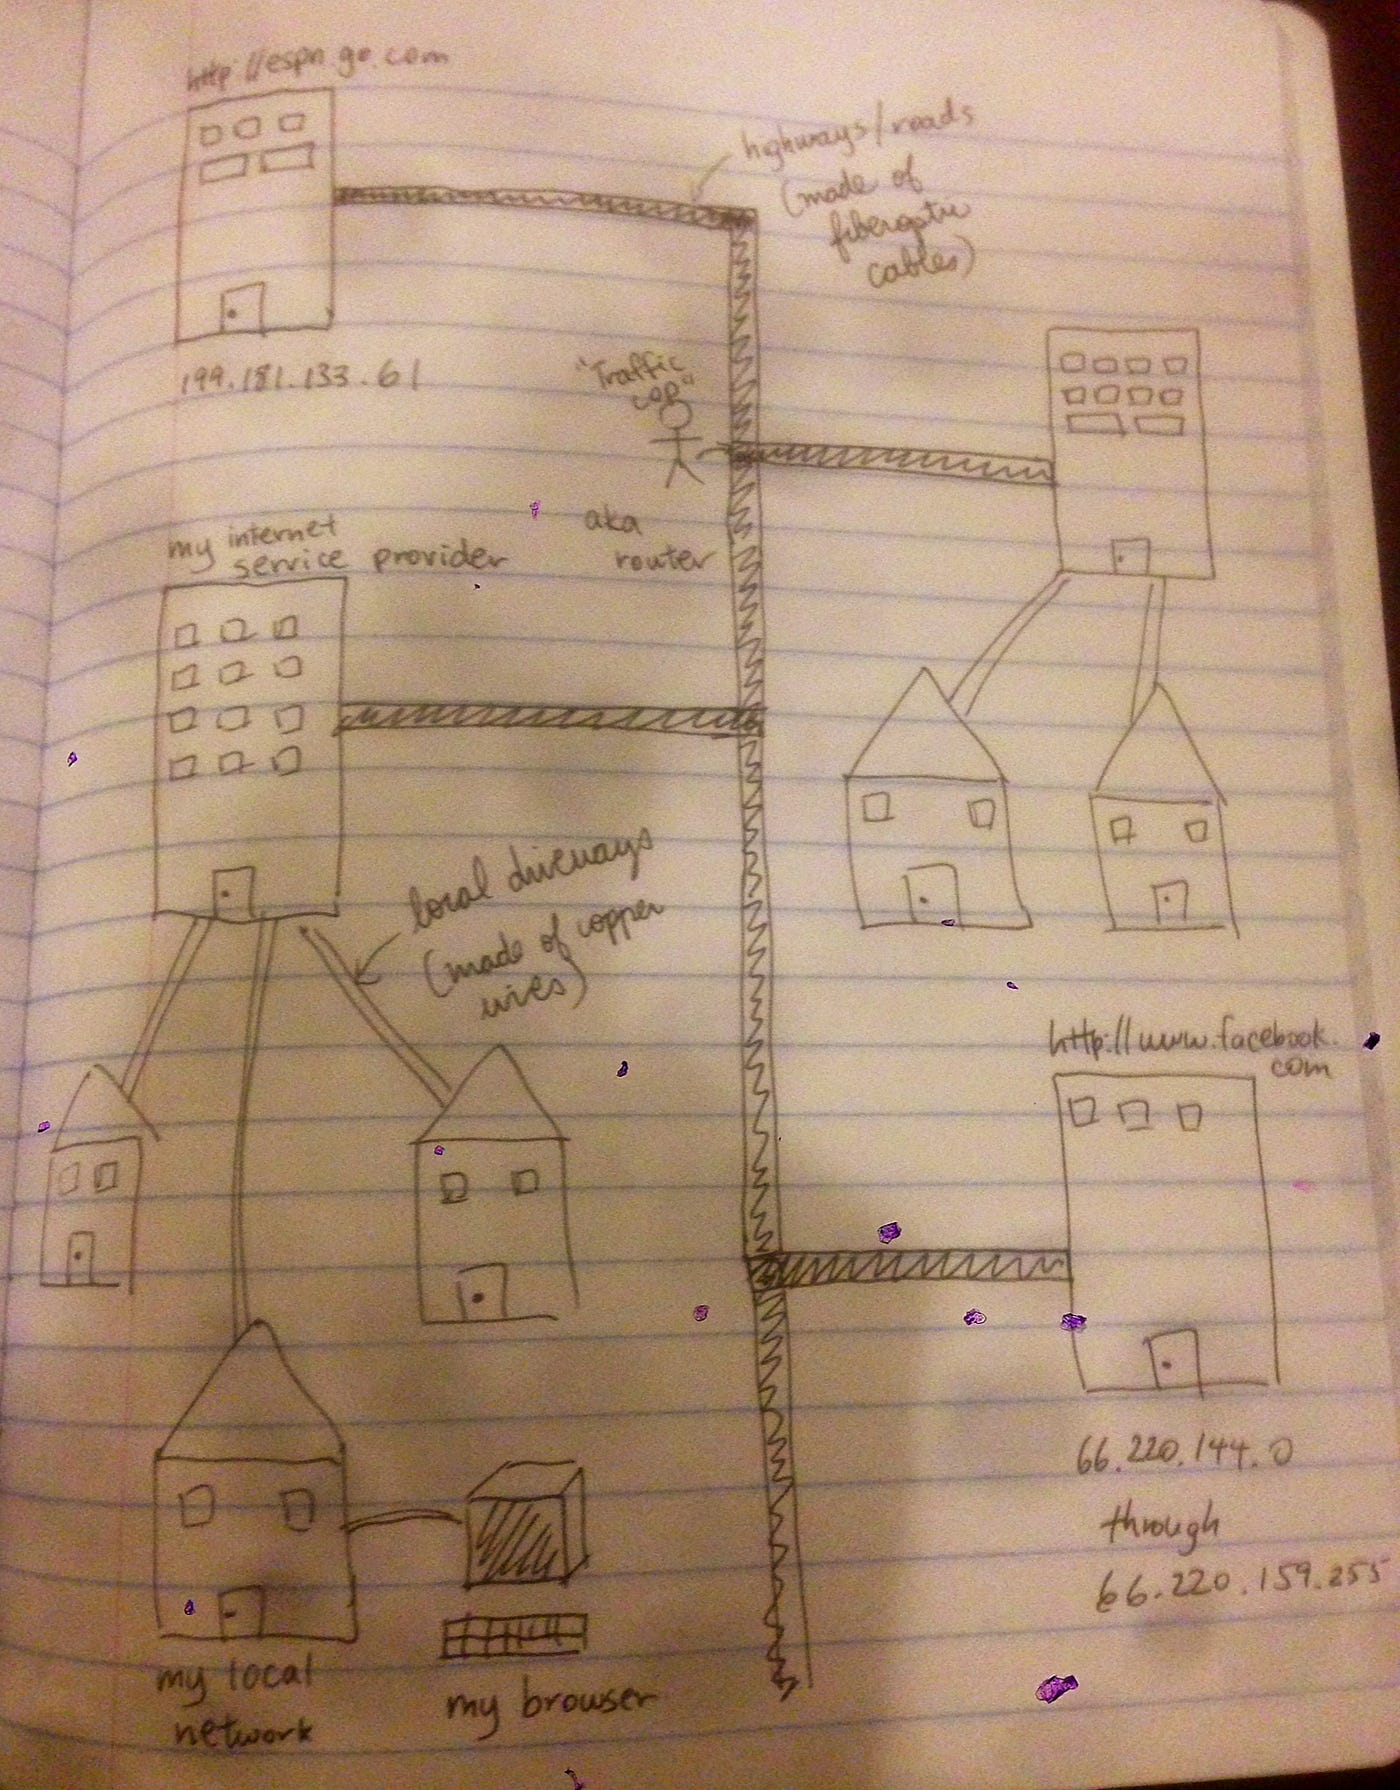 http://espn.go.com
highways/roads
(made of
fiberoptic
cables)
199.181.133.61
"Traffic
cop"
aka
router
my internet
service provider
local driveways
(made of copper
wires)
http://www.facebook.
com
66.220.144.0
through
66.220.159.255
my local
network
my browser